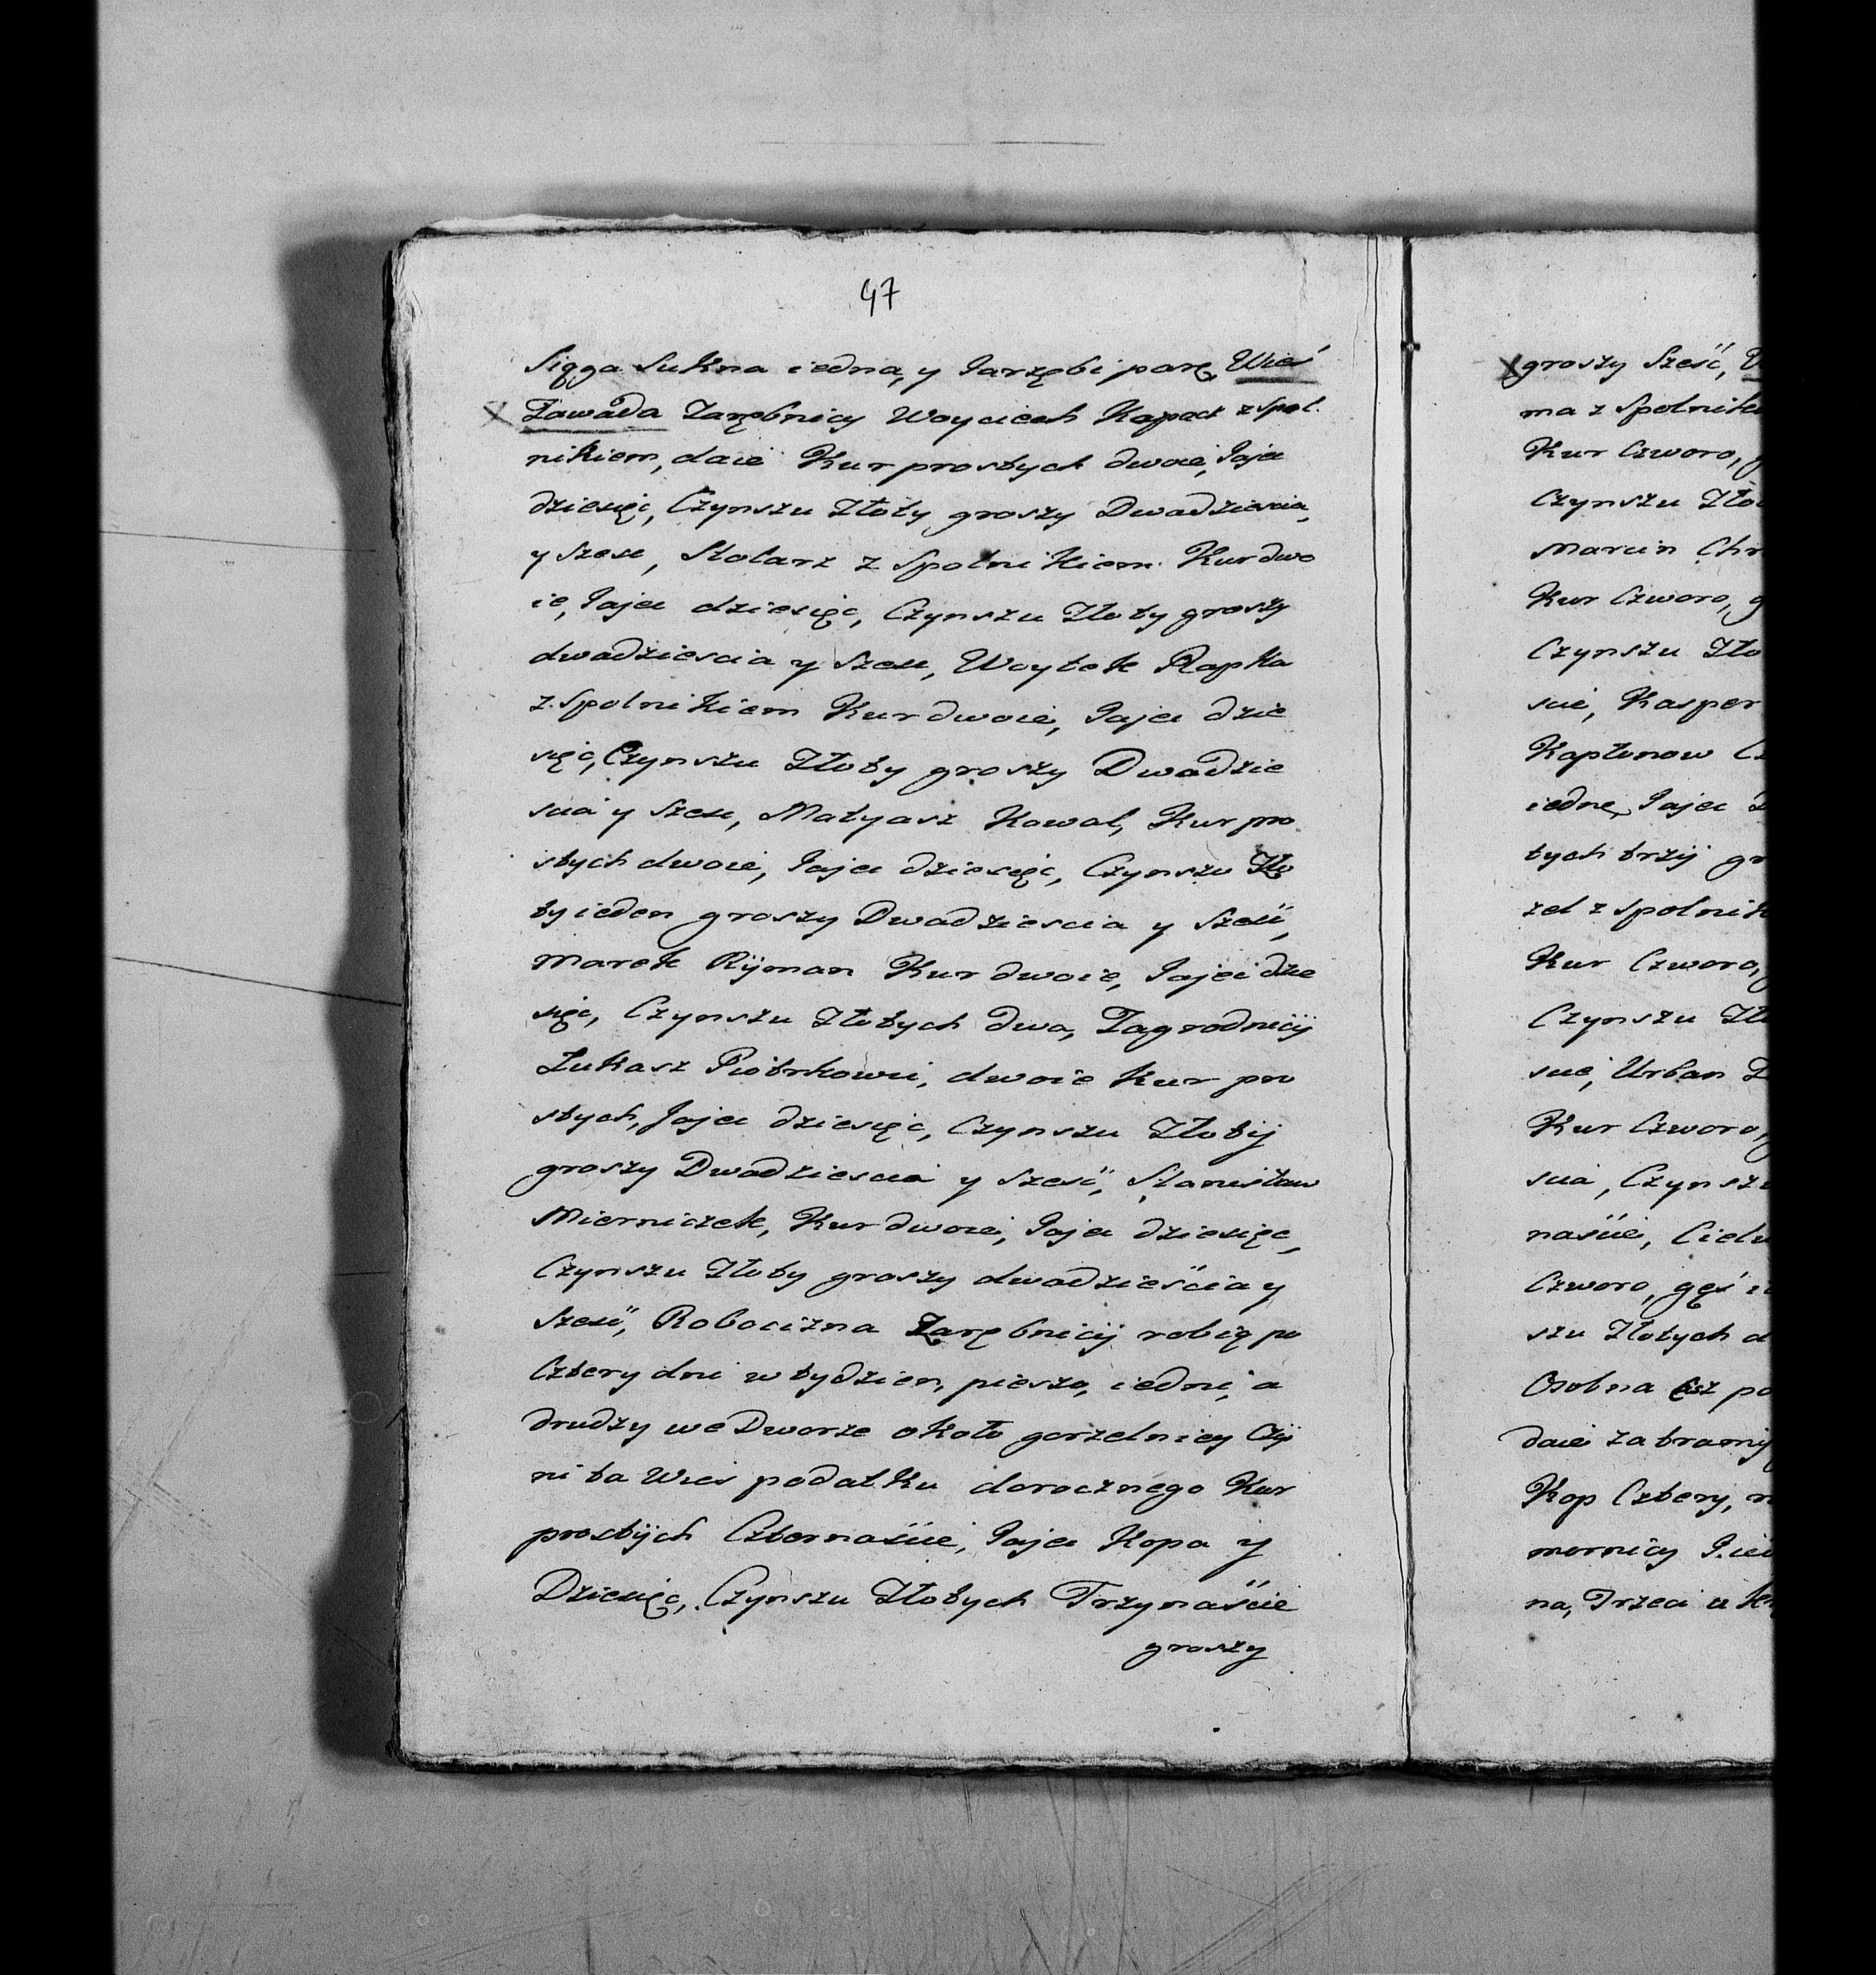 47
Sięga Sukna iedna, y Jarząbi parę, Wieś
Zawada Zarębnicy Woyciech Kapect z Spol.
nikiem, daie Kur prostych dwoie, Jajec
dziesięc, Czynszu Złoty groszy Dwadziescia,
y szesc, Stolarz z Spolnikiem Kur dwo
ie, Jajec dziesięc, Czynszu Złoty groszy
dwadziescia y szesc, Woytek Rapka
z Spolnikiem Kur dwoie, Jajec dzie
sięc, Czynszu Złoty groszy Dwadzie
scia y szesc, Matyasz Kowal, Kur pro
stych dwoie, Jajec dziesięc, Czynszu Zło
ty ieden groszy Dwadziescia y Sześć,
Marek Ryman Kur dwoie, Jajec dzie
sięc, Czynszu Złotych dwa, Zagrodnicy
Łukasz Piotrkowi, dwoie Kur pro
stych, Jajec dziesięc, Czynszu Złoty
groszy Dwadziescia y sześć, Stanisław
Mierniczek, Kur dwoie, Jajec dziesięc,
Czynszu Złoty groszy dwadzieścia y
Sześć, Robocizna Zarębnicy robią po
Cztery dni w tydzien, pieszo, iedni, a
drudzy we Dworze około gorzelnicy Czy
ni ta Wies podatku dorocznego Kur
prostych Czternaście, Jajec Kopa y
Dziesięc, Czynszu Złotych Trzynaście
groszy
groszy Sześć,
ma z Spolnik
Kur Czworo,
Czynszu Zło
Marcin Chr
Kur Czworo, g
Czynszu Zło
scie, Kasper
Kapłonow
iedne, Jajec
tych trzy gr
zel z Spolnik
Kur Czworo,
Czynszu Zł
scie, Urban
Kur Czworo,
scia, Czynsz
naście, Ciel
Czworo, gęś i
szu Złotych d
Osobna po
daie za
Kop Cztery,
mornicy
na, Trzeci u